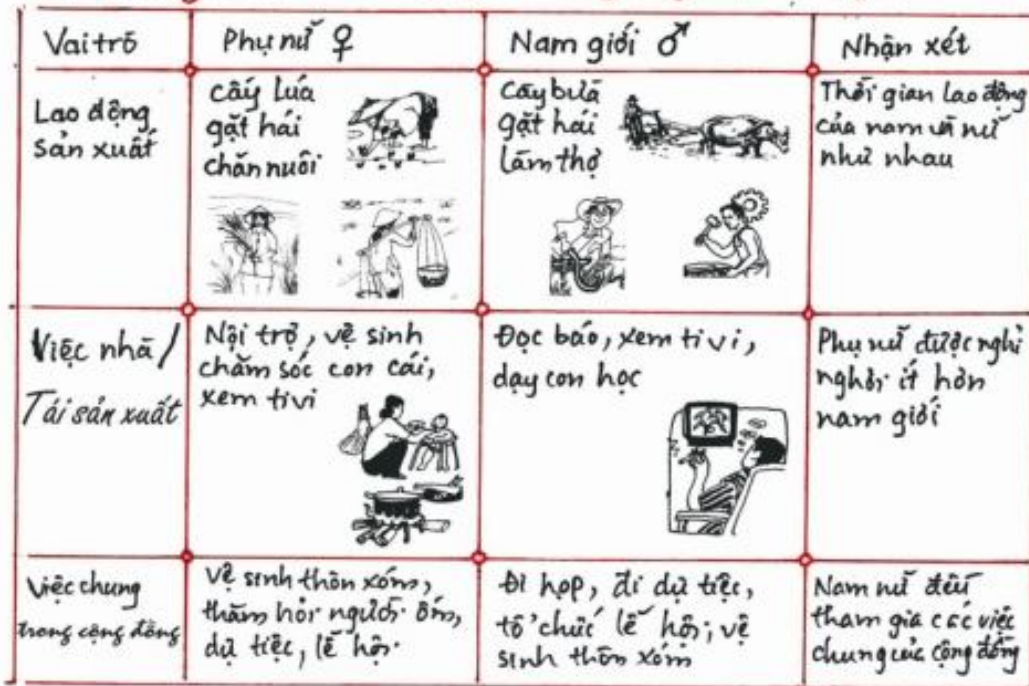 Vai trò
Phụ nữ ♀
Nam giới ♂
Nhận xét
Lao động
sản xuất
cấy lúa
gặt hái
chăn nuôi
Cày bừa
gặt hái
làm thợ
Thời gian lao động
của nam và nữ
như nhau
Việc nhà /
Tái sản xuất
Nội trợ, vệ sinh
chăm sóc con cái,
xem tivi
Đọc báo, xem ti vi,
dạy con học
Phụ nữ được nghỉ
nghơi ít hơn
nam giới
Việc chung
trong cộng đồng
Vệ sinh thôn xóm,
thăm hỏi người ốm,
dự tiệc, lễ hội
Đi họp, đi dự tiệc,
tổ chức lễ hội; vệ
sinh thôn xóm
Nam nữ đều
tham gia các việc
chung của cộng đồng